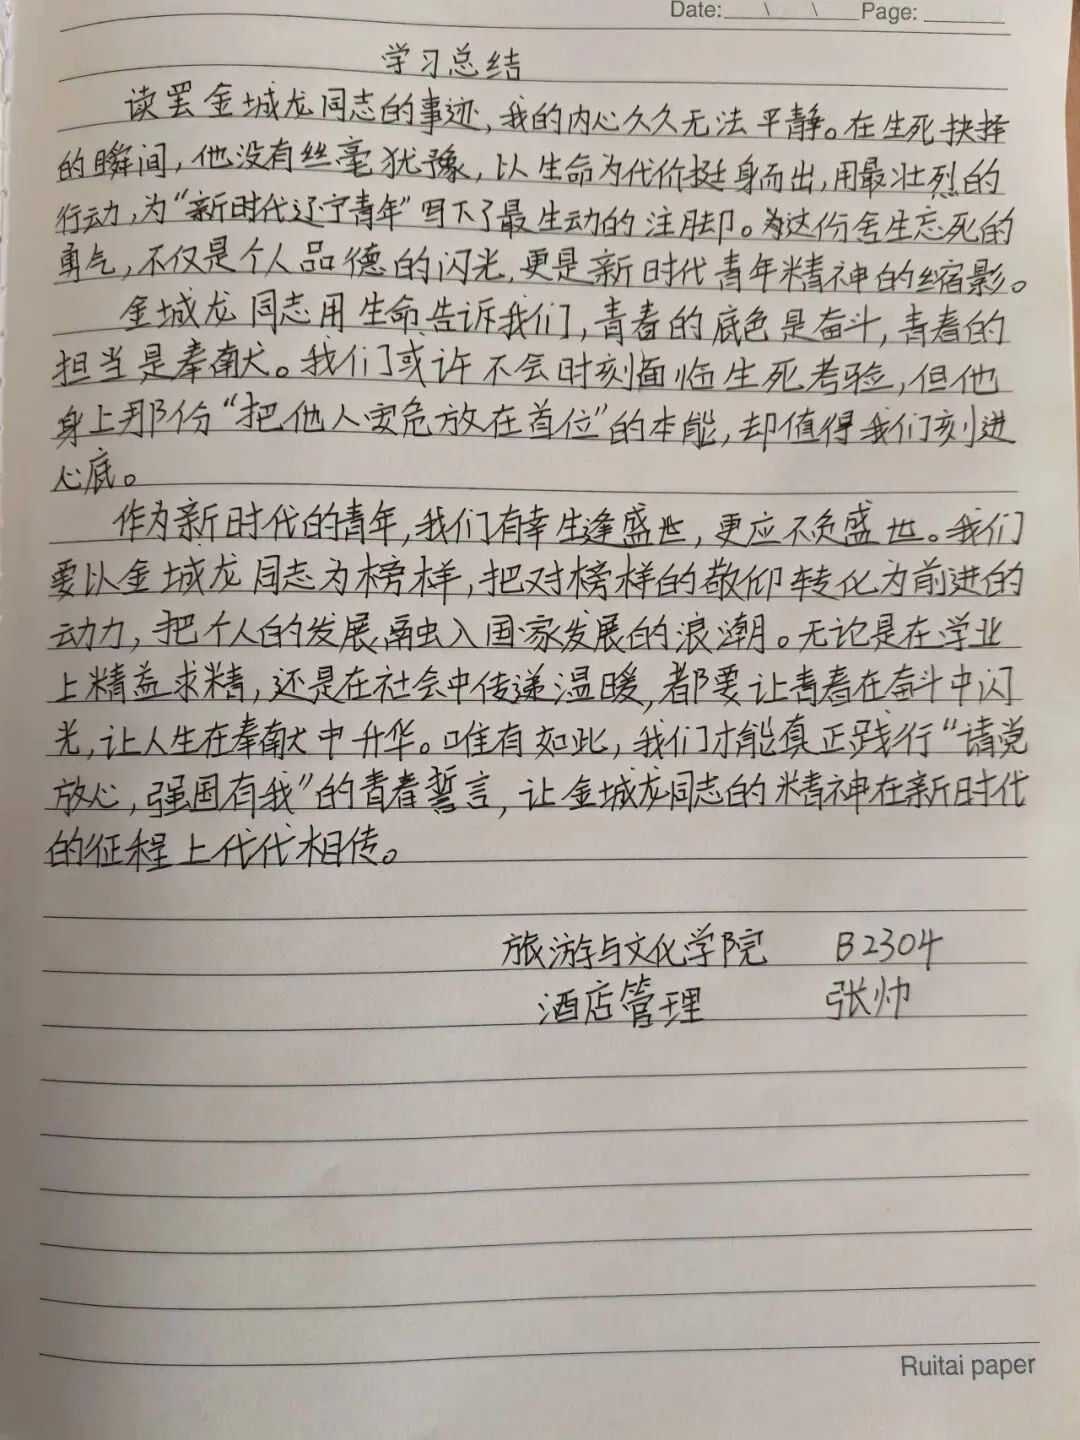 Date: \ \ Page:
学习总结
读罢金城龙同志的事迹,我的内心久久无法平静。在生死抉择
的瞬间,他没有丝毫犹豫,以生命为代价挺身而出,用最壮烈的
行动,为“新时代辽宁青年”写下了最生动的注脚。为这份舍生忘死的
勇气,不仅是个人品德的闪光,更是新时代青年精神的缩影。
金城龙同志用生命告诉我们,青春的底色是奋斗,青春的
担当是奉献。我们或许不会时刻面临生死考验,但他
身上那份“把他人安危放在首位”的本能,却值得我们刻进
心底。
作为新时代的青年,我们有幸生逢盛世,更应不负盛世。我们
要以金城龙同志为榜样,把对榜样的敬仰转化为前进的
动力,把个人的发展融入国家发展的浪潮。无论是在学业
上精益求精,还是在社会中传递温暖,都要让青春在奋斗中闪
光,让人生在奉献中升华。唯有如此,我们才能真正践行“请党
放心,强国有我”的青春誓言,让金城龙同志的精神在新时代
的征程上代代相传。
旅游与文化学院 B2304
酒店管理 张帅
Ruitai paper